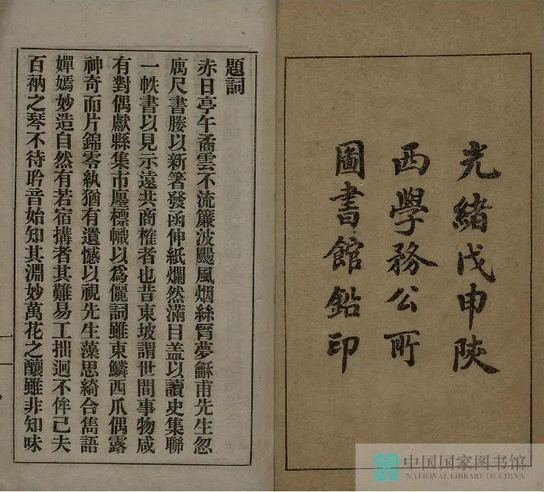 光緒戊申陝
西學務公所
圖書館鉛印
題詞
赤日亭午矞雲不流簾波颺風烟絲罥夢穌甫先生忽
厲尺書媵以新箸發函伸紙爛然滿目盖以讀史集聯
一帙書以見示遠共商榷者也昔東坡謂世間事物咸
有對偶獻縣集市廛標幟以爲儷詞雖東鱗西爪偶露
神奇而片錦零紈猶有遺憾以視先生藻思綺合雋語
嬋嫣妙造自然有若宿搆者其難易工拙迥不侔已夫
百衲之琴不待聆音始知其淵妙萬花之釀雖非知味
中国国家图书馆
NATIONAL LIBRARY OF CHINA